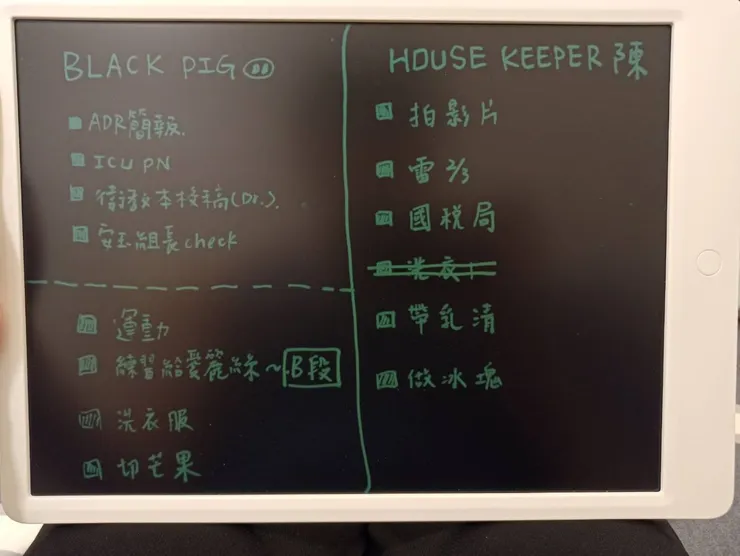 BLACK PIG
ADR簡報.
ICU PN
衛教本校稿(Dr.).
安玉組長check
運動
練習給愛麗絲~B段
洗衣服
切芒果
HOUSE KEEPER 陳
拍影片
雷2/3
國稅局
洗衣
帶乳清
做冰塊